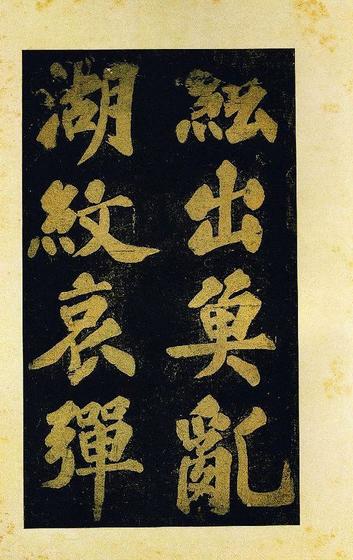 出奐亂
湖紋哀彈